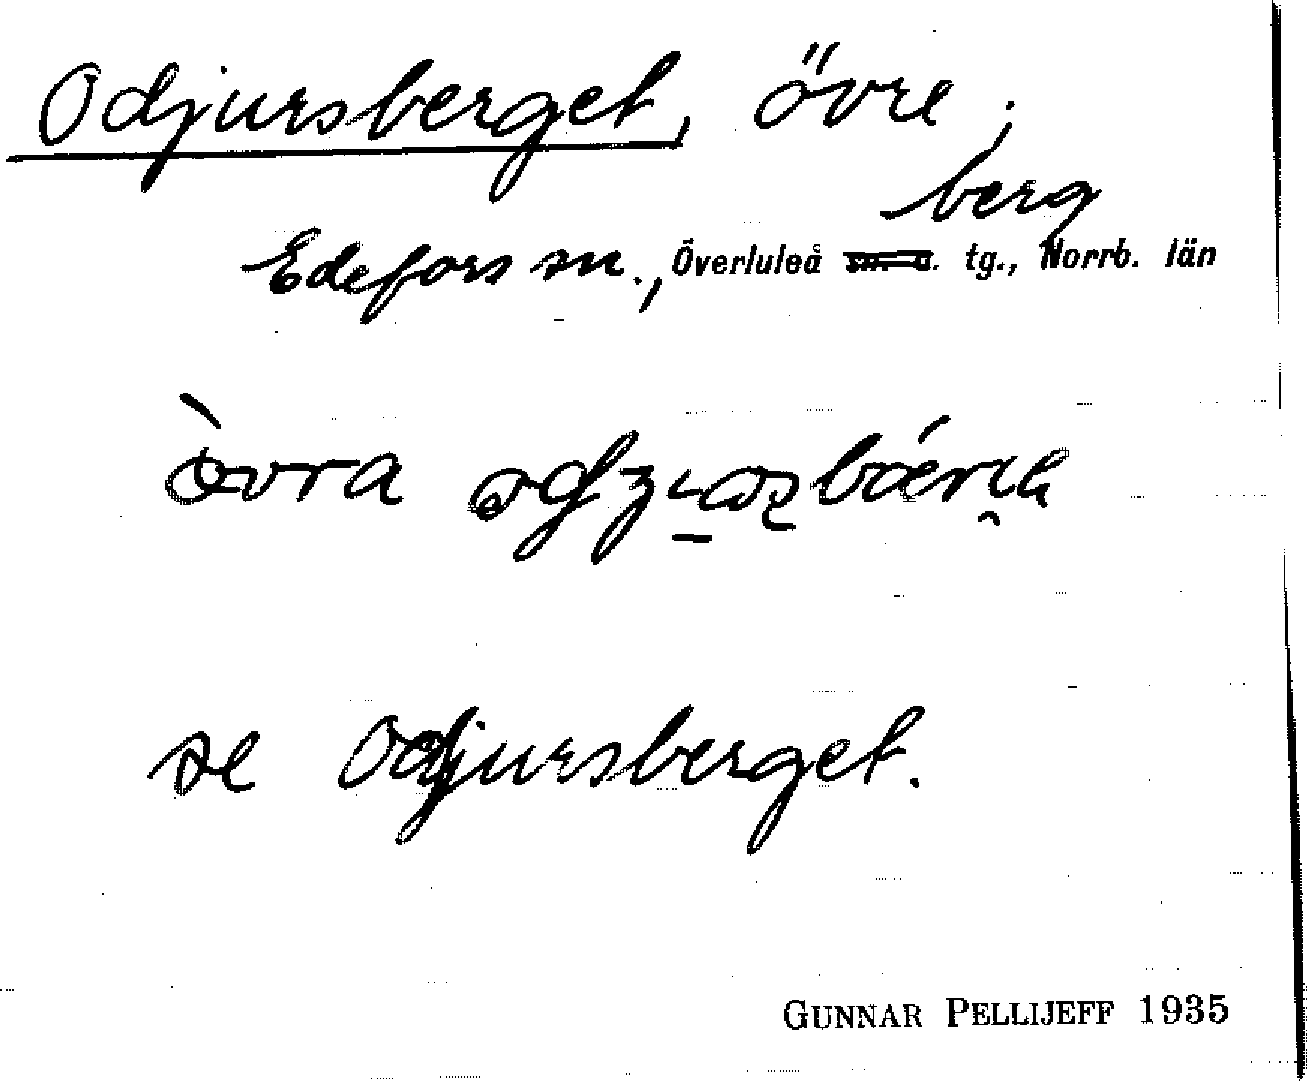 Odjursberget, övre;
berg
Edefors sn., Överluleå tg., Norrb. län
se Odjursberget.
GUNNAR PELLIJEFF 1935